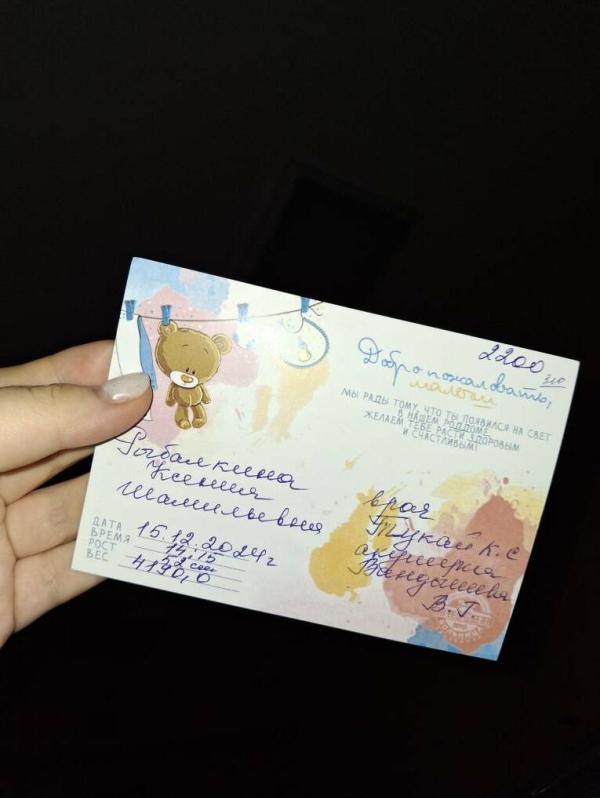 2200
310
Добро пожаловать,
малыш
МЫ РАДЫ ТОМУ, ЧТО ТЫ ПОЯВИЛСЯ НА СВЕТ
В НАШЕМ РОДДОМЕ.
ЖЕЛАЕМ ТЕБЕ РАСТИ ЗДОРОВЫМ
И СЧАСТЛИВЫМ!
Рыбалкина
Ксения
Шамильевна
ДАТА 15.12.2024г
ВРЕМЯ 14.15
РОСТ 52 см
ВЕС 4190,0
врач
Тукай К. С
акушерка
Вандышева
В. Г.